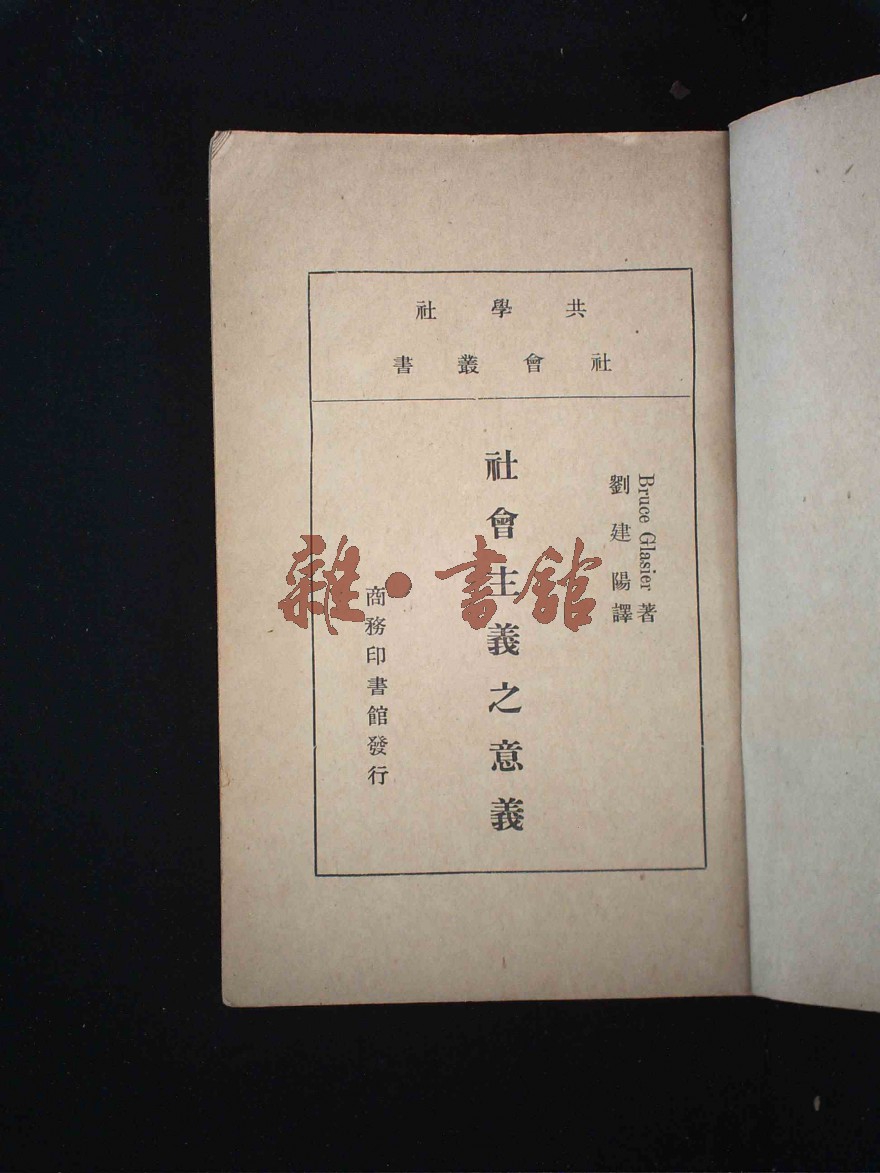 共學社
社會叢書
Bruce Glasier 著
劉建陽譯
社會主義之意義
商務印書館發行
雜·書館